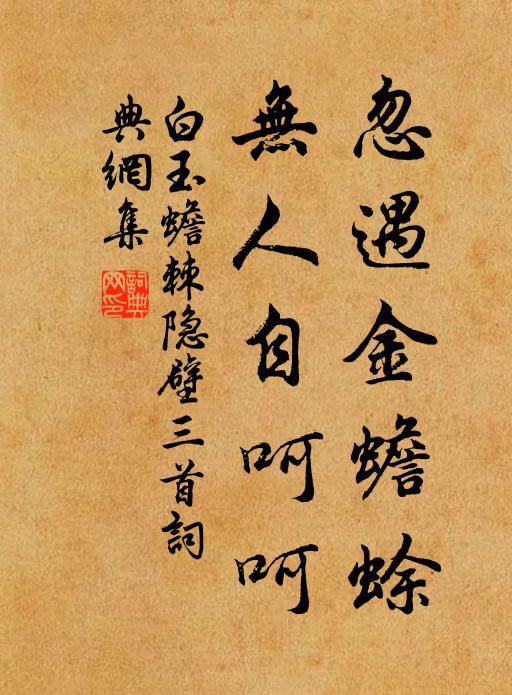 忽遇金蟾蜍
無人自呵呵
白玉蟾棘隐壁三首詞
典網集
詞典網印